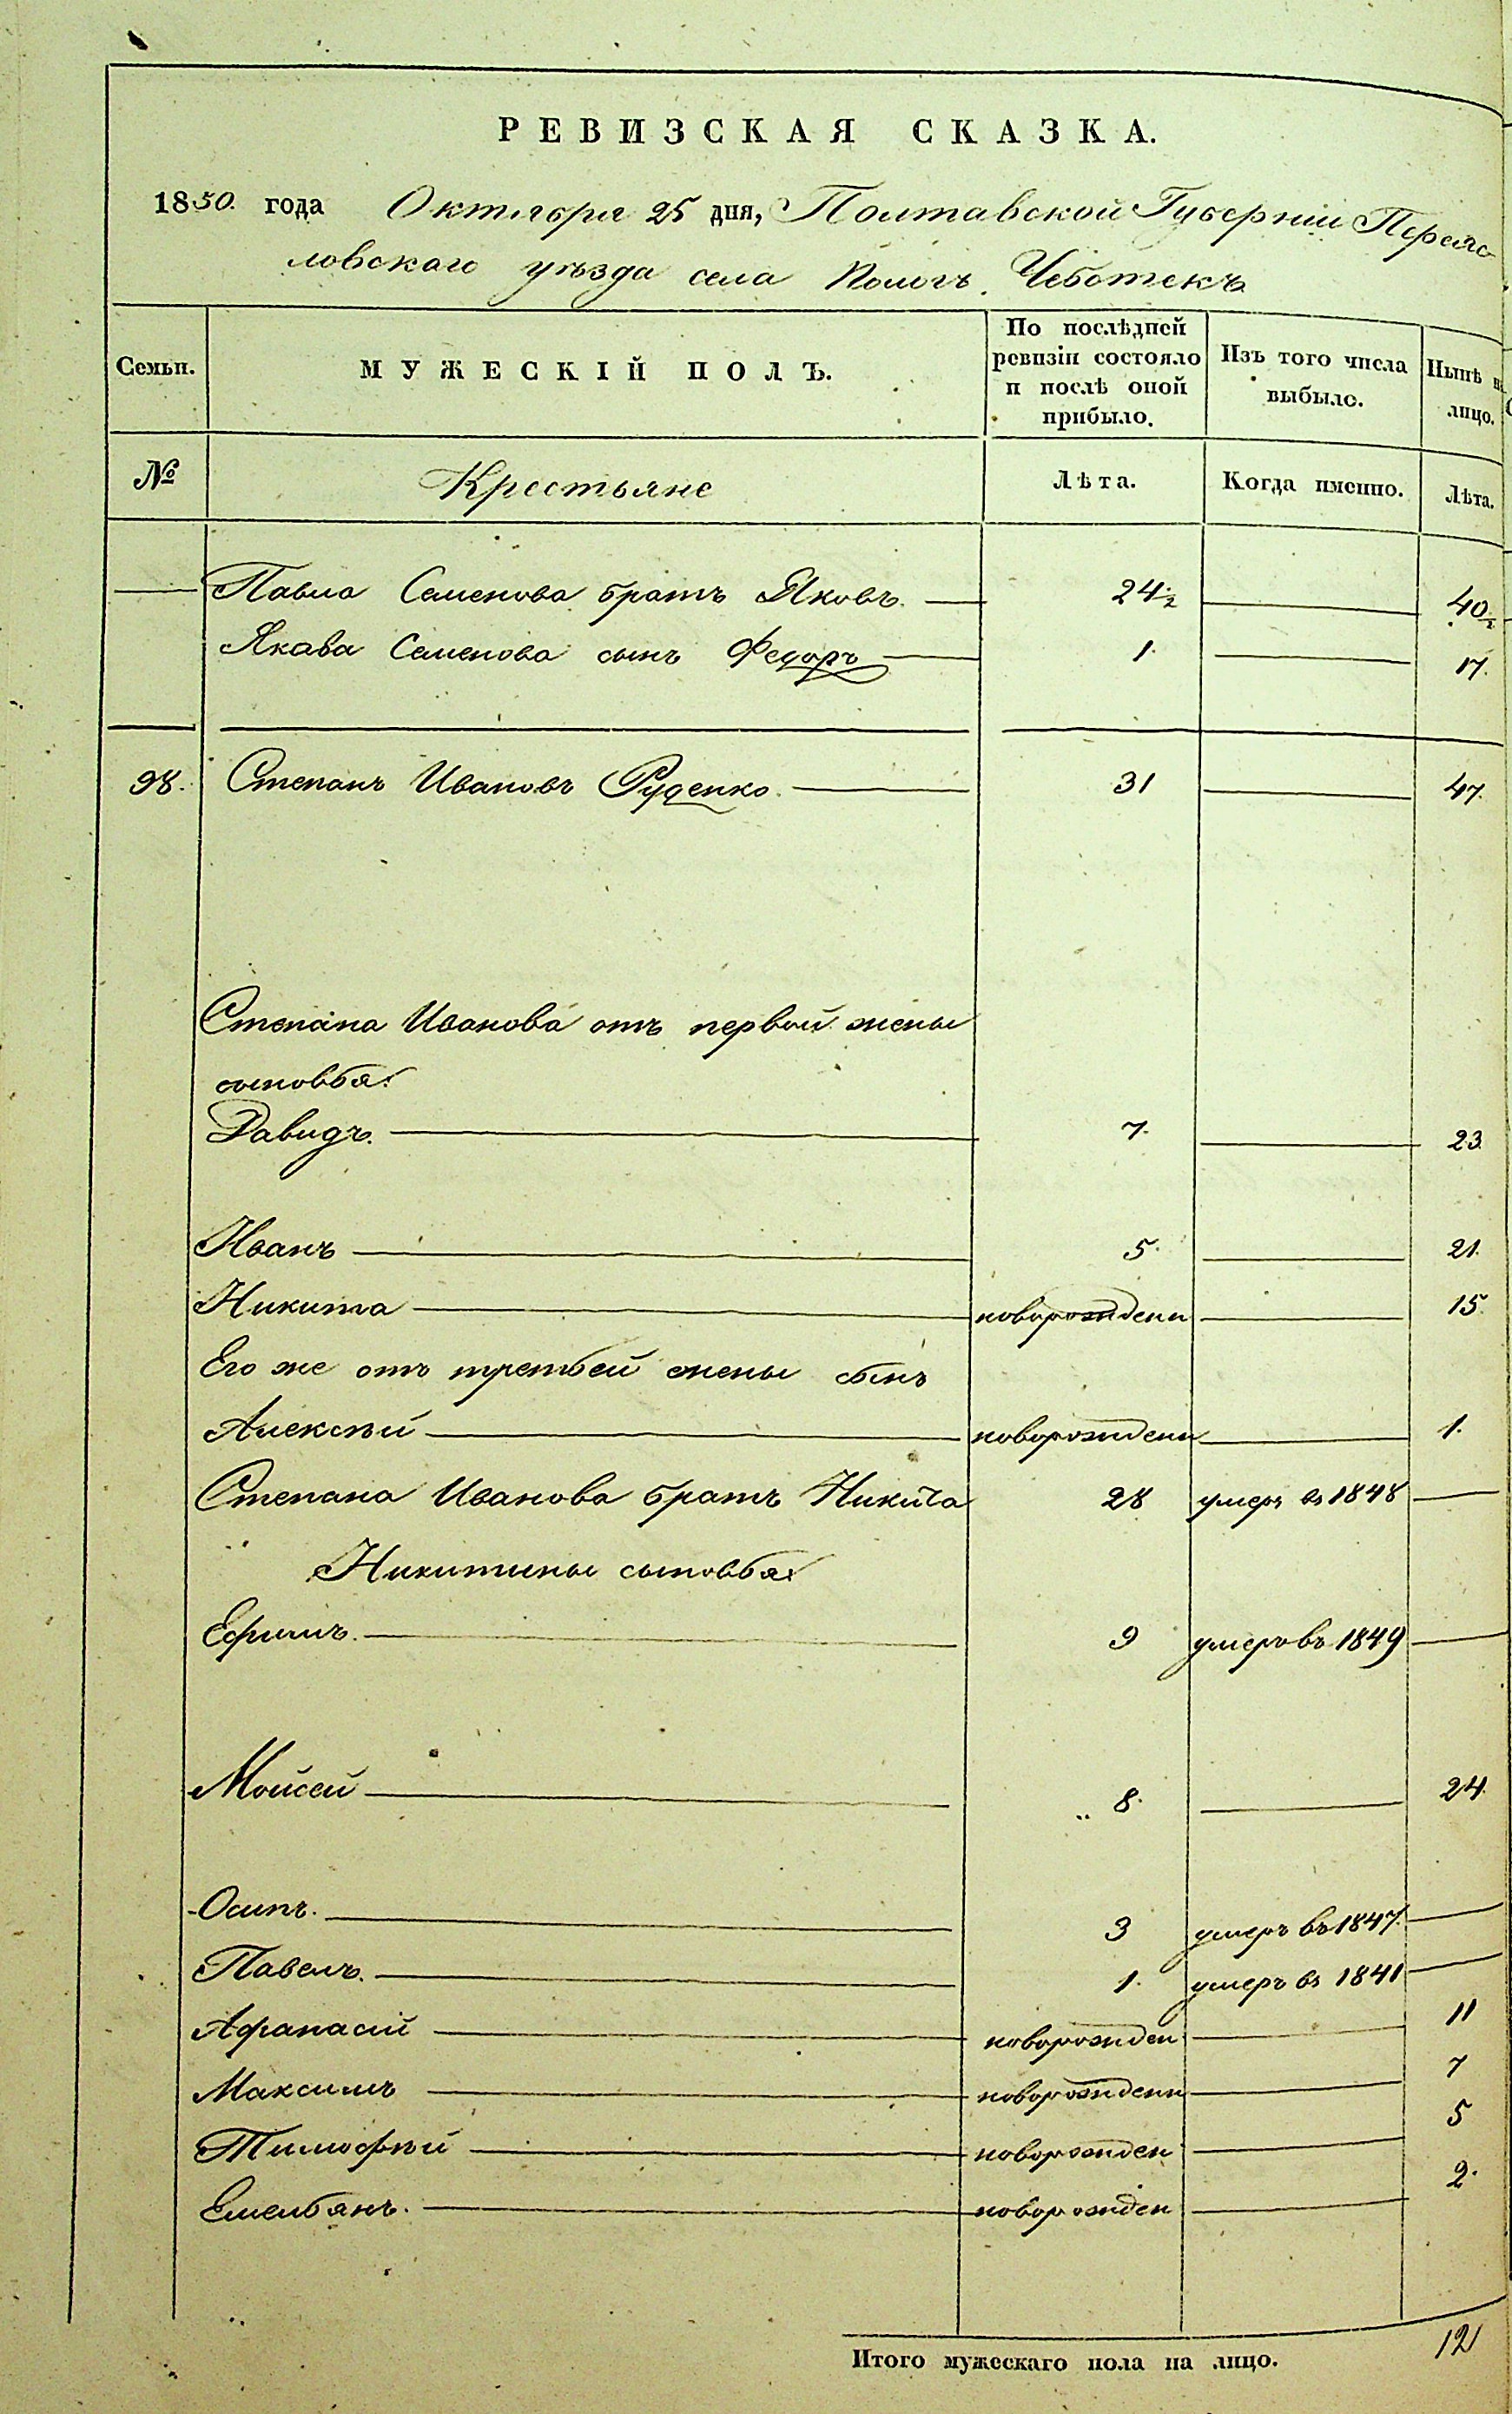 РЕВИЗСКАЯ СКАЗКА.
1850. года Октября 25 дня, Полтавской Губерніи Переяс
ловскаго уѣзда села Пологъ Чеботекъ
Семьи. МУЖЕСКІЙ ПОЛЪ. По послѣдней ревизіи состояло и послѣ оной прибыло. Изъ того числа выбыло. Нынѣ на лицо.
№ Крестьяне Лѣта. Когда именно. Лѣта.
Павла Семенова братъ Яковъ. 24½ 40½
Якова Семенова сынъ Федоръ 1. 17.
98. Степанъ Ивановъ Руденко. 31 47.
Степана Иванова отъ первой жены
сыновья:
Давидъ. 7. 23.
Иванъ 5. 21.
Никита новорожденн 15.
Его же отъ третьей жены сынъ
Алексѣй новорожденн 1.
Степана Иванова братъ Никита 28 умеръ въ 1848
Никитины сыновья:
Ефимъ. 9 умеръ въ 1849
Мойсей 8. 24.
Осипъ. 3 умеръ въ 1847.
Павелъ. 1. умеръ въ 1841
Афанасій новорожден 11
Максимъ новорожденн 7
Тимофѣй новорожден 5
Емельянъ. новорожден 2.
Итого мужескаго пола на лицо. 12